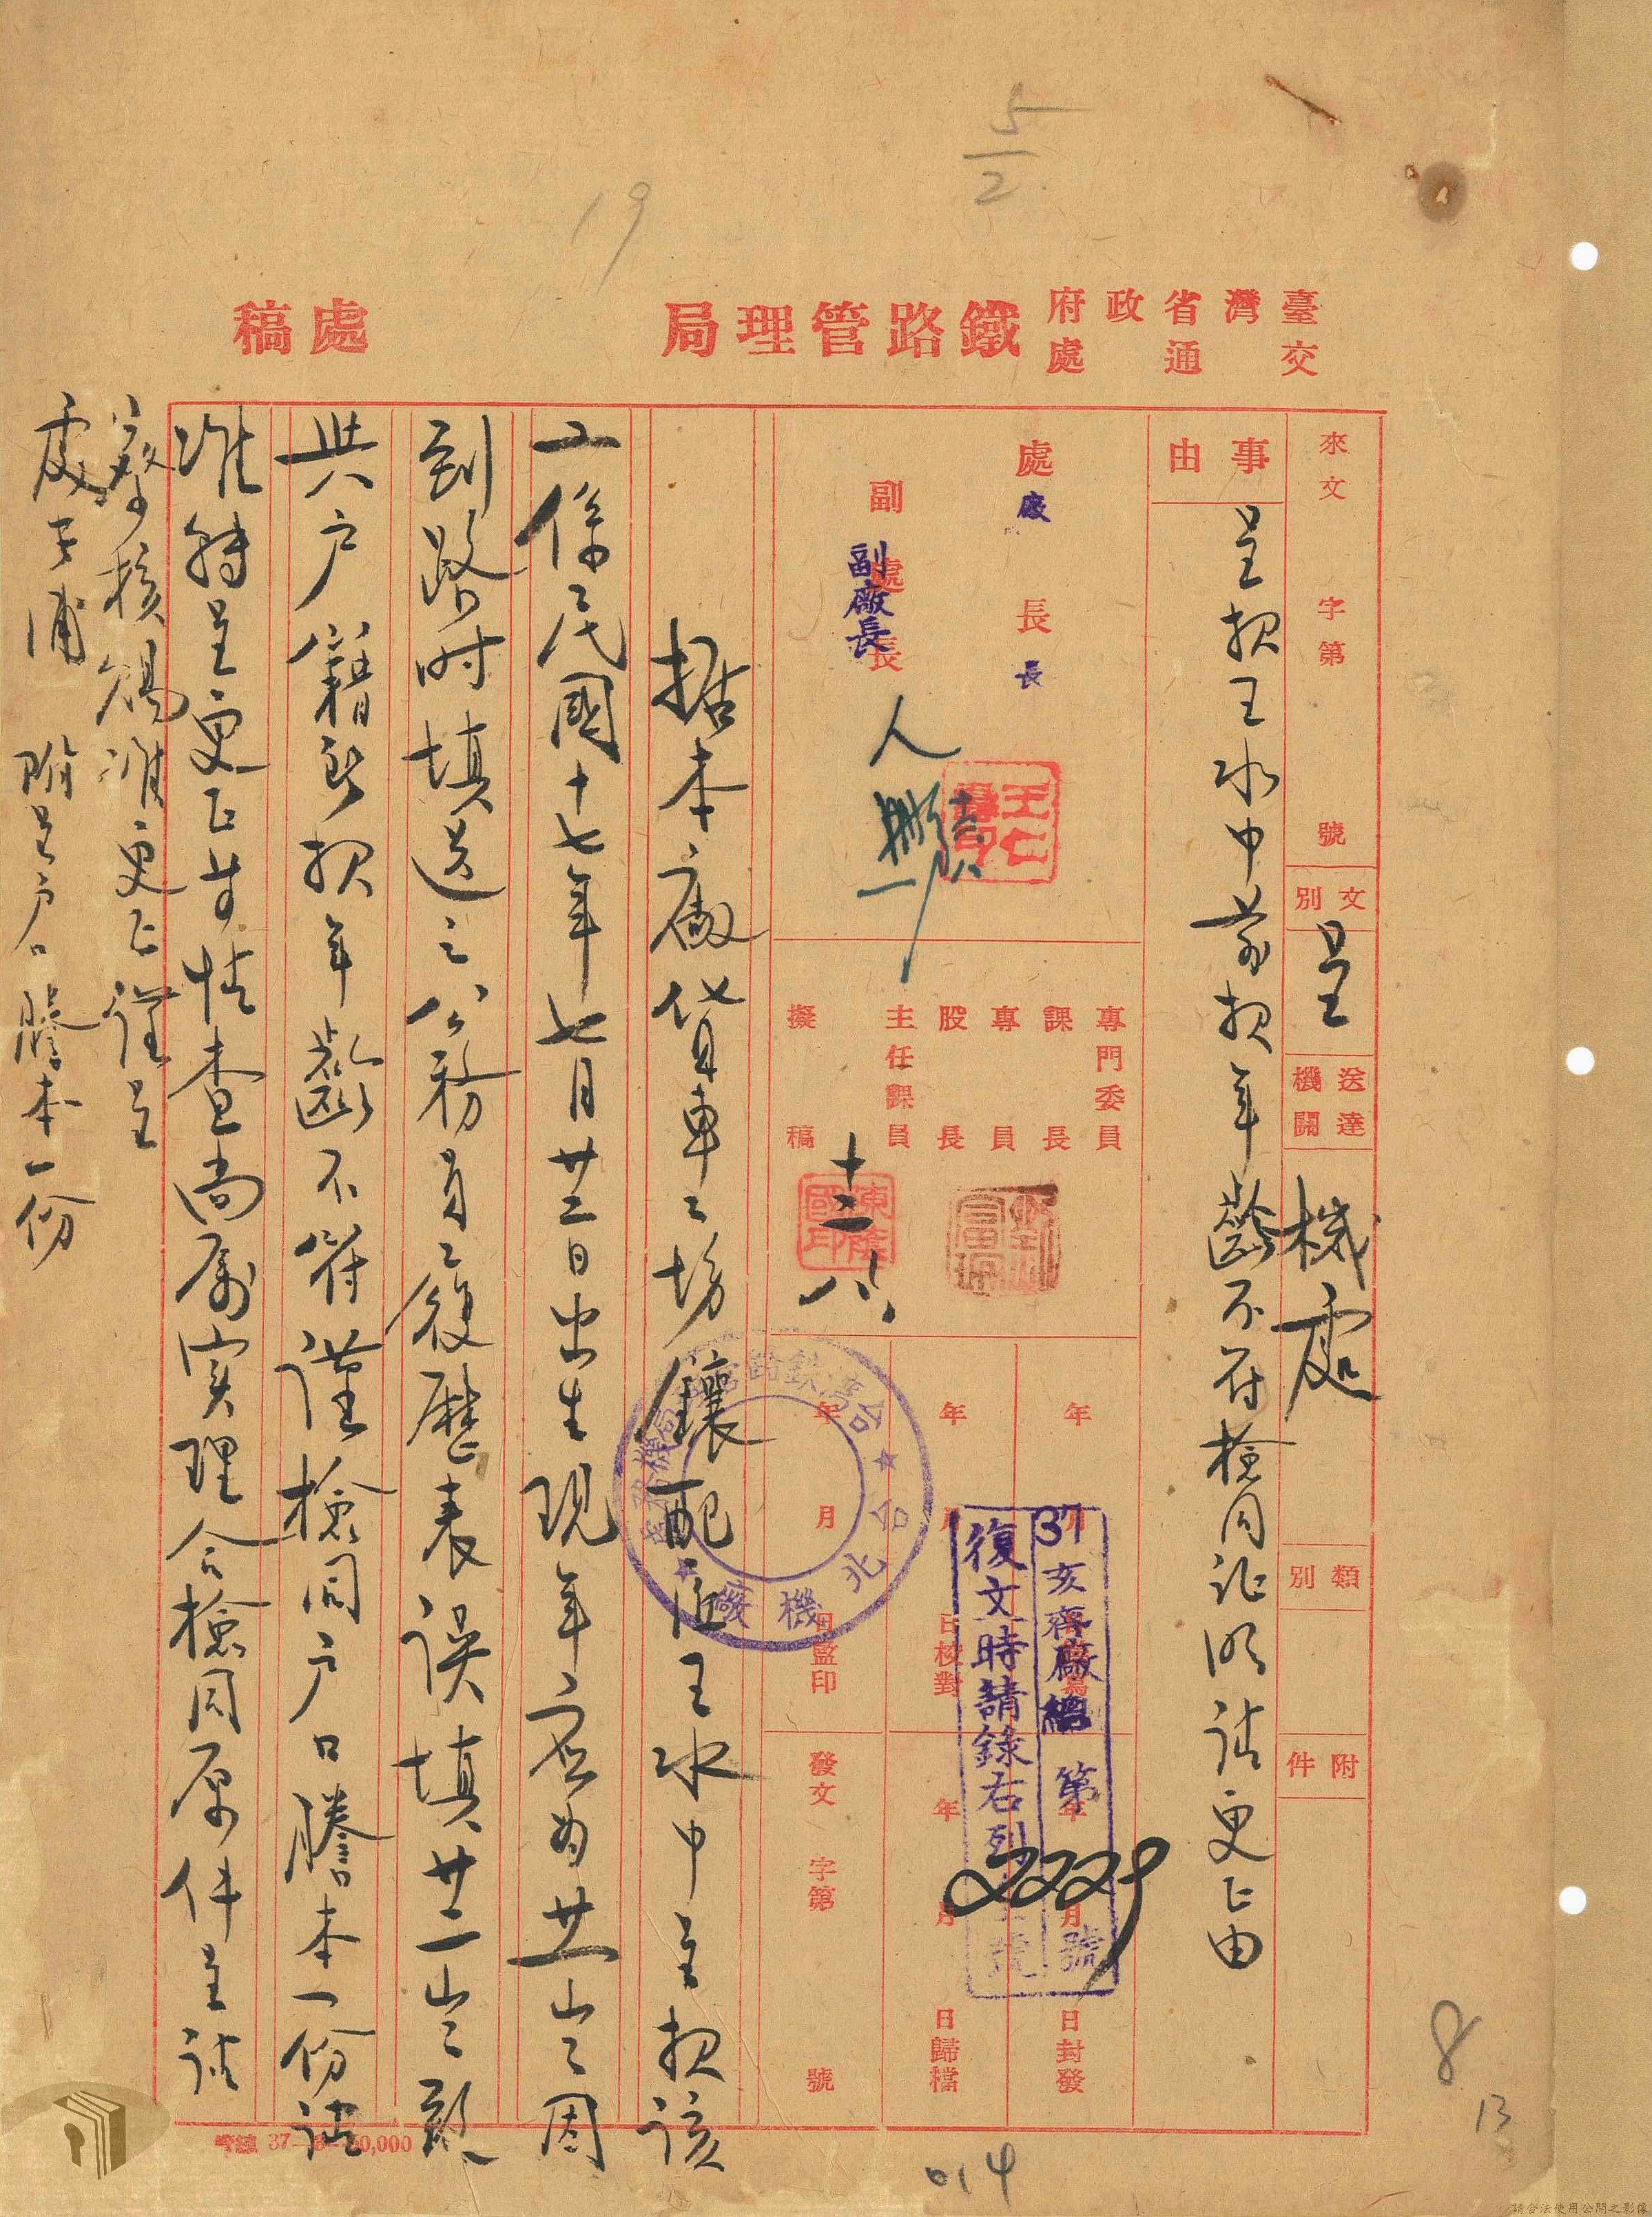 5/2
19
臺灣省政府
交通處
鐵路管理局
處稿
來文 字第 號
文別 呈
送達機關 機處
類別
附件
事由
呈報王水中前報年齡不符檢同証明請更正由
處長
廠長
副處長
副廠長
專門委員
課長
專員
股長
主任課員
擬稿
十二 八
年 月 日封發
年 月 日校對
年 月 日歸檔
年 月 日監印
發文 字第 號
37亥齊廠總第2229號
復文時請錄右列
台北機廠
據本廠貨車工場鑲配匠王水中呈報該
工係民國十七年七月廿二日出生現年應為廿一岁因
到路时填送之公務員工履歷表误填廿二岁致
與戶籍所報年齡不符謹檢同戶口謄本一份請
准轉呈更正等情查尚屬实理合檢同原件呈請
察核賜准更正謹呈
處長浦
附呈戶口謄本一份
37—8—50,000
014
8
13
請合法使用公開之影像